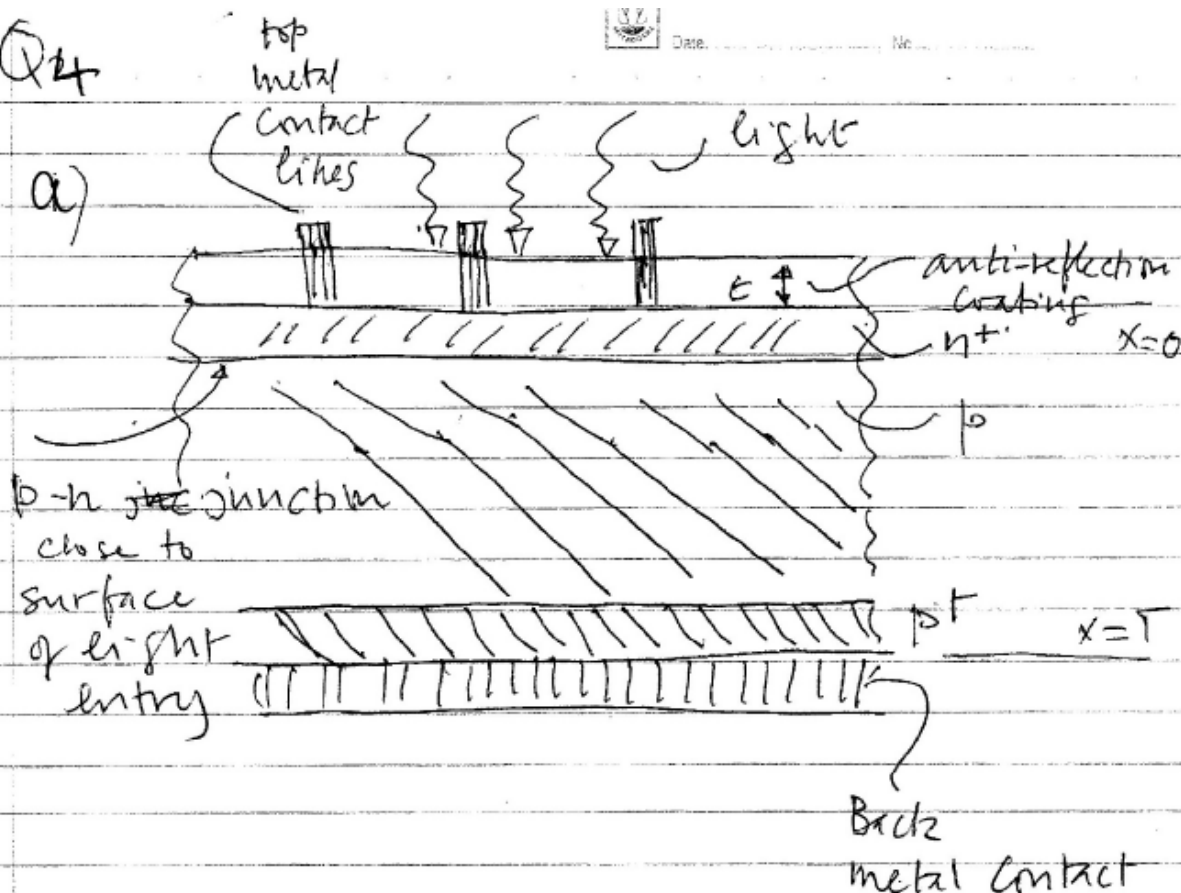 Q4
Date. No.
a)
top
metal
contact
lines
light
t
anti-reflection
coating
n+
x=0
p
p-n junction
close to
surface
of light
entry
p+
x=T
Back
metal contact